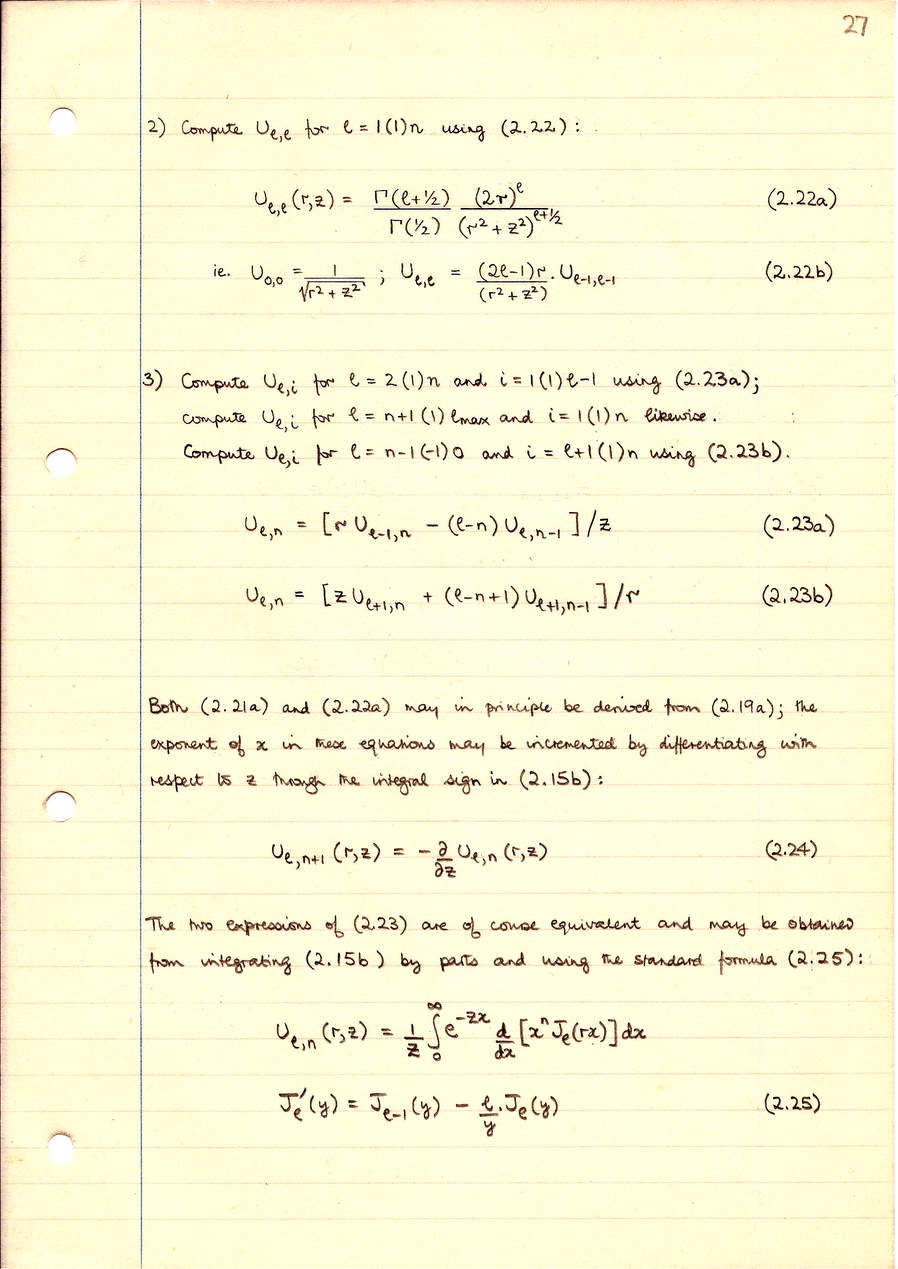 27
2) Compute U_{ℓ,ℓ} for ℓ = 1(1)n using (2.22):
U_{ℓ,ℓ}(r,z) = Γ(ℓ+½)/Γ(½) (2r)^ℓ/(r²+z²)^{ℓ+½} (2.22a)
ie. U_{0,0} = 1/√(r²+z²) ; U_{ℓ,ℓ} = (2ℓ-1)r/(r²+z²) . U_{ℓ-1,ℓ-1} (2.22b)
3) Compute U_{ℓ,i} for ℓ = 2(1)n and i = 1(1)ℓ-1 using (2.23a);
compute U_{ℓ,i} for ℓ = n+1(1)ℓmax and i = 1(1)n likewise.
Compute U_{ℓ,i} for ℓ = n-1(-1)0 and i = ℓ+1(1)n using (2.23b).
U_{ℓ,n} = [r U_{ℓ-1,n} - (ℓ-n) U_{ℓ,n-1}]/z (2.23a)
U_{ℓ,n} = [z U_{ℓ+1,n} + (ℓ-n+1) U_{ℓ+1,n-1}]/r (2.23b)
Both (2.21a) and (2.22a) may in principle be derived from (2.19a); the
exponent of x in these equations may be incremented by differentiating with
respect to z through the integral sign in (2.15b):
U_{ℓ,n+1}(r,z) = -∂/∂z U_{ℓ,n}(r,z) (2.24)
The two expressions of (2.23) are of course equivalent and may be obtained
from integrating (2.15b) by parts and using the standard formula (2.25):
U_{ℓ,n}(r,z) = 1/z ∫_0^∞ e^{-zx} d/dx [x^n J_ℓ(rx)] dx
J_ℓ'(y) = J_{ℓ-1}(y) - ℓ/y . J_ℓ(y) (2.25)